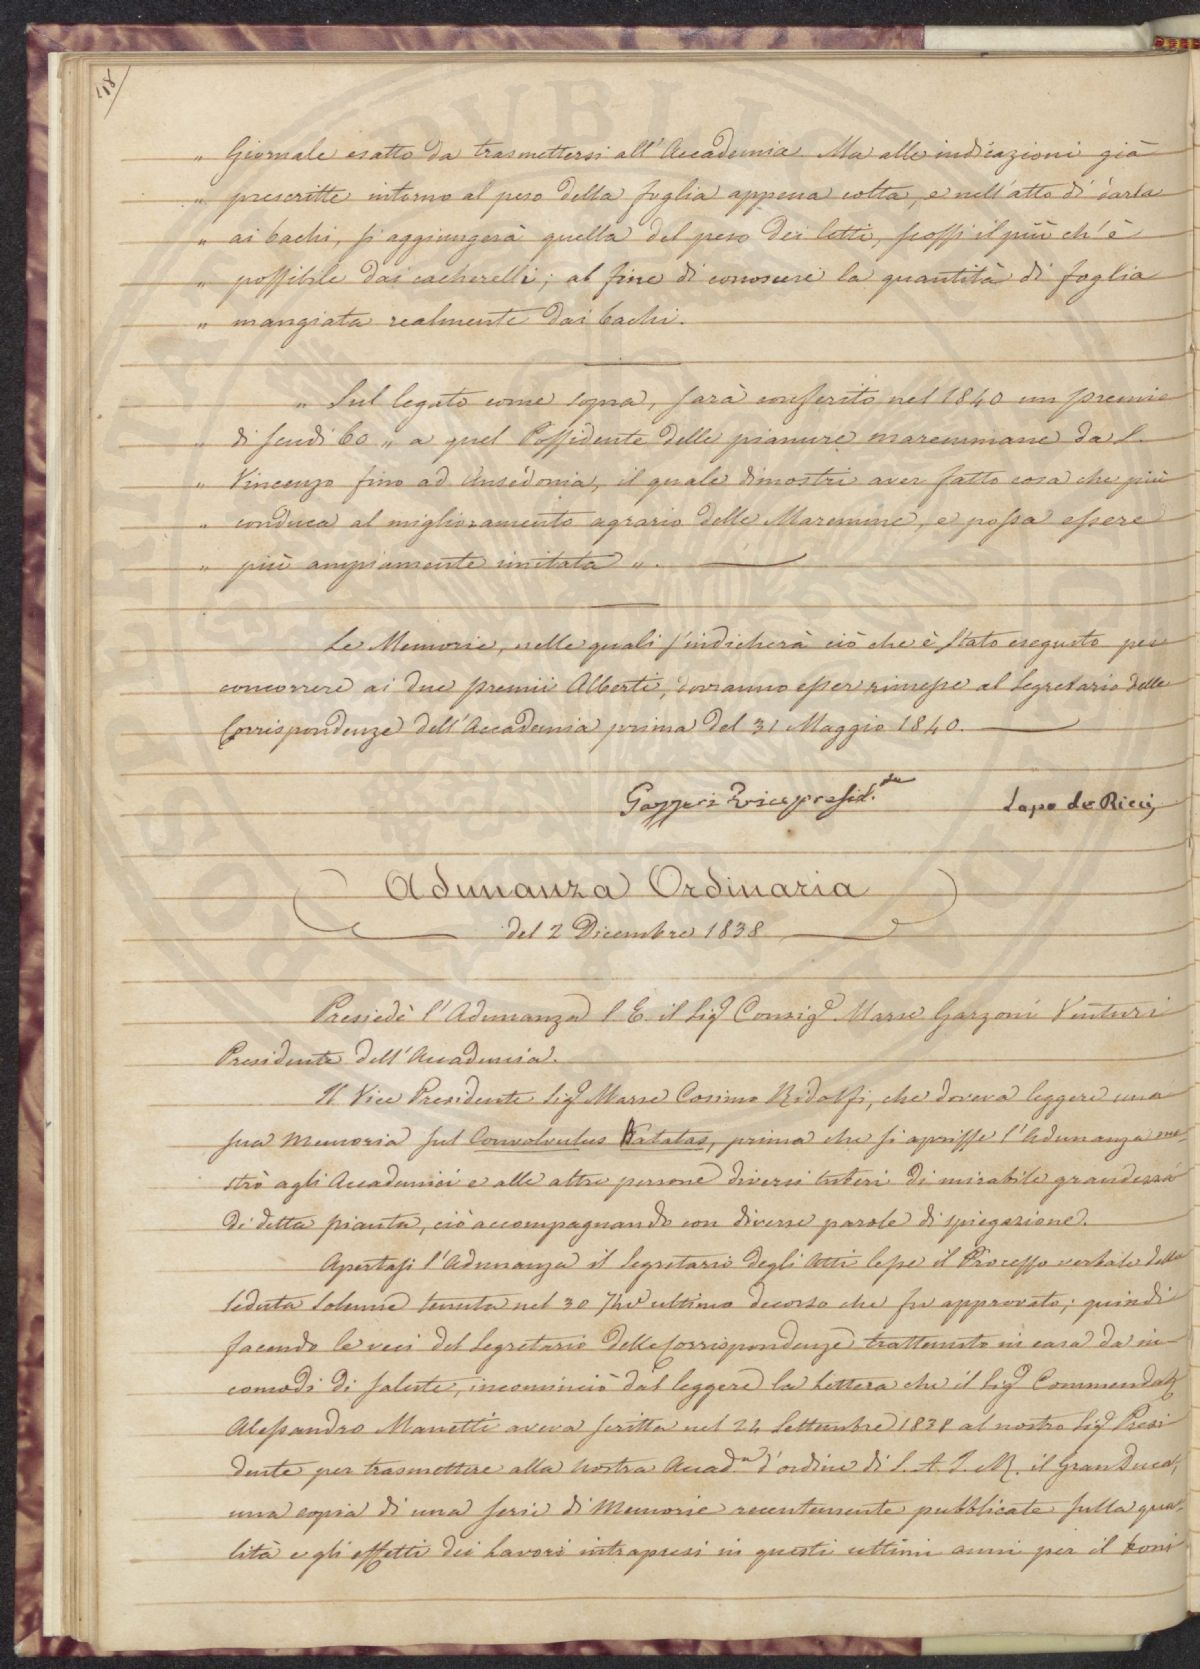 48
„ Giornale esatto da trasmettersi all'Accademia. Ma alle indicazioni già
„ prescritte intorno al peso della foglia appena colta, e nell'atto di darla
„ ai bachi, si aggiungerà quella del peso dei letti, scossi il più ch'è
„ possibile dai cacherelli; al fine di conoscere la quantità di foglia
„ mangiata realmente dai bachi.
„ Sul legato come sopra, sarà conferito nel 1840 un premio
„ di scudi 60 „ a quel Possidente delle pianure maremmane da S.
„ Vincenzo fino ad Ansedonia, il quale dimostri aver fatto cosa che più
„ conduca al miglioramento agrario delle Maremme, e possa essere
„ più ampiamente imitata „.
Le Memorie, nelle quali s'indicherà ciò che è stato eseguito per
concorrere ai due premii Alberti, dovranno esser rimesse al Segretario delle
Corrispondenze dell'Accademia prima del 31 Maggio 1840.
Gazzeri Vicepresid.te Lapo de Ricci
Adunanza Ordinaria
del 2 Dicembre 1838
Presiedè l'Adunanza S. E. il Sigr Consigr Marse Garzoni Venturi
Presidente dell'Accademia.
Il Vice Presidente Sigr Marse Cosimo Ridolfi, che doveva leggere una
sua memoria sul Convolvulus Batatas, prima che si aprisse l'Adunanza mo-
strò agli Accademici e alle altre persone diversi tuberi di mirabile grandezza
di detta pianta, ciò accompagnando con diverse parole di spiegazione.
Apertasi l'Adunanza il Segretario degli Atti lesse il Processo verbale della
seduta solenne tenuta nel 30 7bre ultimo decorso che fu approvato; quindi
facendo le veci del Segretario delle Corrispondenze trattenuto in casa da in-
comodi di salute, incominciò dal leggere la Lettera che il Sigr Commendatr
Alessandro Manetti aveva scritta nel 24 Settembre 1838 al nostro Sigr Presi
dente per trasmettere alla nostra Accad.a d'ordine di S. A. I. e R. il GranDuca,
una copia di una serie di Memorie recentemente pubblicate sulla qua-
lità e gli effetti dei Lavori intrapresi in questi ultimi anni per il boni